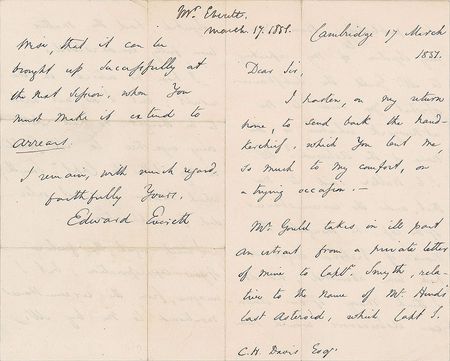 Cambridge 17 March
1851.
Dear Sir,
I hasten, on my return
home, to send back the hand-
kerchief, which You lent me,
so much to my comfort, on
a trying occasion. —
Mr. Gould takes in ill part
an extract from a private letter
of mine to Captn. Smyth, rela-
tive to the name of Mr. Hind's
last Asteroid, which Capt S.
C. H. Davis Esqr.
Mr. Everett.
March 17. 1851.
wise, that it can be
brought up successfully at
the next Session, when You
must make it extend to
arrears.
I remain, with much regard,
faithfully Yours,
Edward Everett